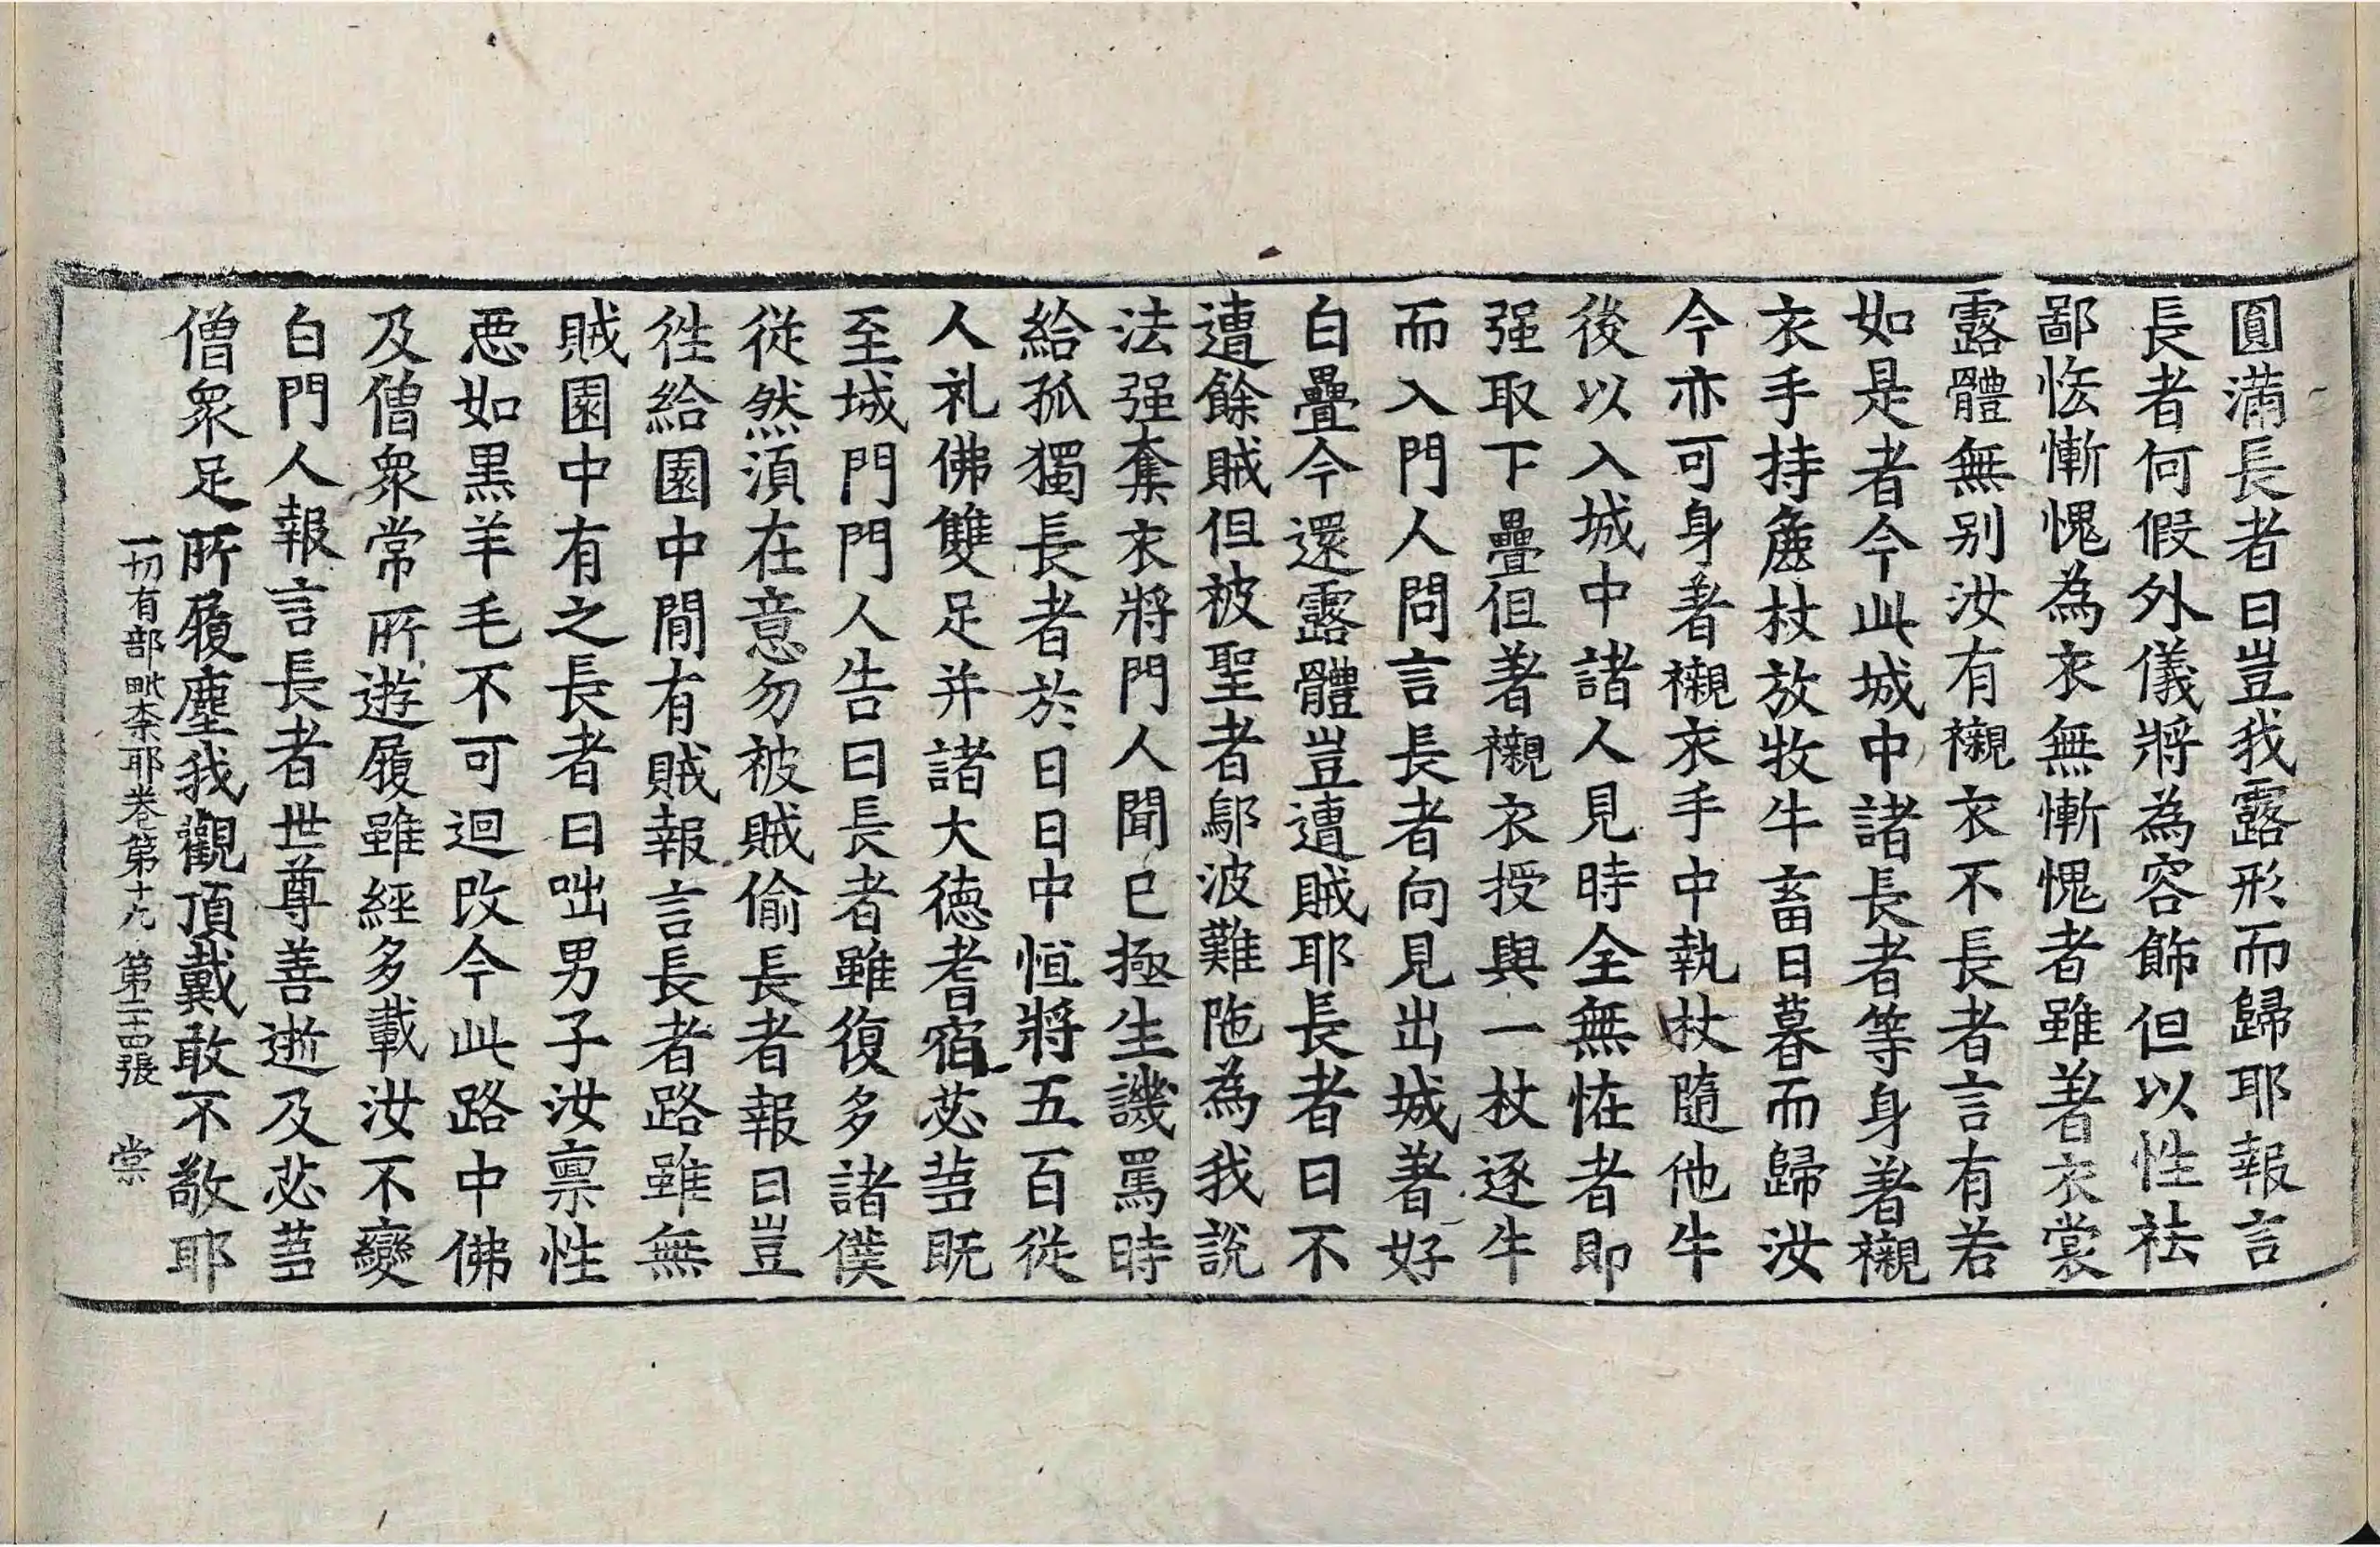 圓滿長者曰豈我露形而歸耶報言
長者何假外儀將為容飾但以性祛
鄙恡慚愧為衣無慚愧者雖著衣裳
露體無别汝有襯衣不長者言有若
如是者今此城中諸長者等身著襯
衣手持麁杖放牧牛畜日暮而歸汝
今亦可身著襯衣手中執杖隨他牛
後以入城中諸人見時全無恠者即
强取下疊但著襯衣授與一杖逐牛
而入門人問言長者向見出城著好
白疊今還露體豈遭賊耶長者曰不
遭餘賊但被聖者鄔波難陁為我說
法强奪衣將門人聞已極生譏罵時
給孤獨長者於日日中恒將五百従
人礼佛雙足并諸大德耆宿苾芻既
至城門門人告曰長者雖復多諸僕
従然湏在意勿被賊偷長者報曰豈
徃給園中閒有賊報言長者路雖無
賊園中有之長者曰咄男子汝禀性
惡如黒羊毛不可迴改今此路中佛
及僧衆常所遊履雖經多載汝不變
白門人報言長者世尊善逝及苾芻
僧衆足所履塵我觀頂戴敢不敬耶
一切有部毗柰耶卷第十九 第二十四張 棠